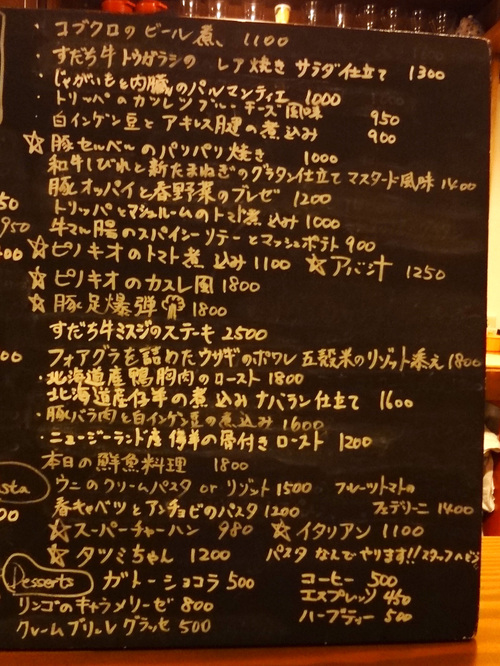 ・コブクロのビール煮 1100
・すだち牛トウガラシの レア焼き サラダ仕立て 1300
・じゃがいもと内臓のパルマンティエ 1000
・トリッパのカツレツブルーチーズ風味 950
白インゲン豆と アキレス腱の煮込み 900
☆豚セルベールのパリパリ焼き 1000
和牛しびれと新たまねぎのグラタン仕立て マスタード風味 1400
豚オッパイと春野菜のブレゼ 1200
トリッパとマッシュルームのトマト煮込み 1000
牛マル腸のスパイシーソテーとマッシュポテト 900
☆ピノキオのトマト煮込み 1100 ☆アバ汁 1250
☆ピノキオのカスレ風 1800
☆豚足爆弾 1800
すだち牛ミスジのステーキ 2500
フォアグラを詰めたウサギのポワレ 五穀米のリゾット添え 1800
・北海道産鴨胸肉のロースト 1800
北海道産仔羊の煮込みナバラン仕立て 1600
・豚バラ肉と白インゲン豆の煮込み 1600
・ニュージーランド産仔羊の骨付きロースト 1200
本日の鮮魚料理 1800
sta ウニのクリームパスタ or リゾット 1500 フルーツトマトの
春キャベツとアンチョビのパスタ 1200 フェデリーニ 1400
☆スーパーチャーハン 980 ☆イタリアン 1100
☆タツミちゃん 1200 パスタ なんでやります!! スタッフへ
Desserts ガトーショコラ 500 コーヒー 500
リンゴのキャラメリーゼ 800 エスプレッソ 450
クレームブリュレグラッセ 500 ハーブティー 500